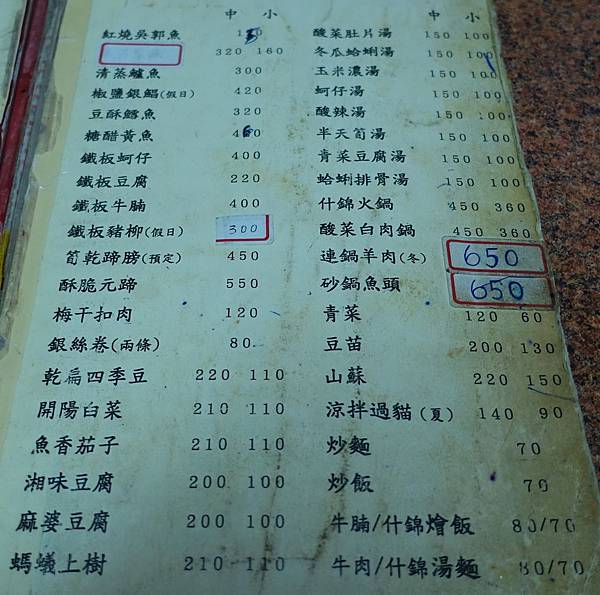 中 小
紅燒吳郭魚
320 160
清蒸鱸魚 300
椒鹽銀鯧(假日) 420
豆酥鱈魚 320
糖醋黃魚
鐵板蚵仔 400
鐵板豆腐 220
鐵板牛腩 400
鐵板豬柳(假日) 300
筍乾蹄膀(預定) 450
酥脆元蹄 550
梅干扣肉 120
銀絲卷(兩條) 80
乾扁四季豆 220 110
開陽白菜 210 110
魚香茄子 210 110
湘味豆腐 200 100
麻婆豆腐 200 100
螞蟻上樹 210 110
中 小
酸菜肚片湯 150 100
冬瓜蛤蜊湯 150 100
玉米濃湯 150 100
蚵仔湯 150 100
酸辣湯 150 100
半天筍湯 150 100
青菜豆腐湯 150 100
蛤蜊排骨湯 150 100
什錦火鍋 450 360
酸菜白肉鍋 450 360
連鍋羊肉(冬) 650
砂鍋魚頭 650
青菜 120 60
豆苗 200 130
山蘇 220 150
涼拌過貓(夏) 140 90
炒麵 70
炒飯 70
牛腩/什錦燴飯 80/70
牛肉/什錦湯麵 80/70